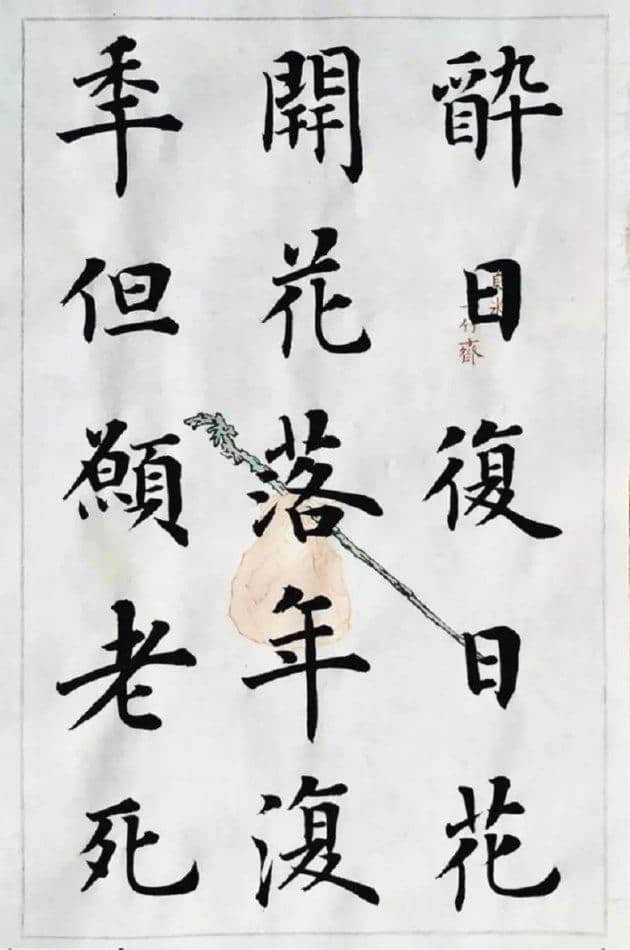 醉日復日花
開花落年復
秊但願老死